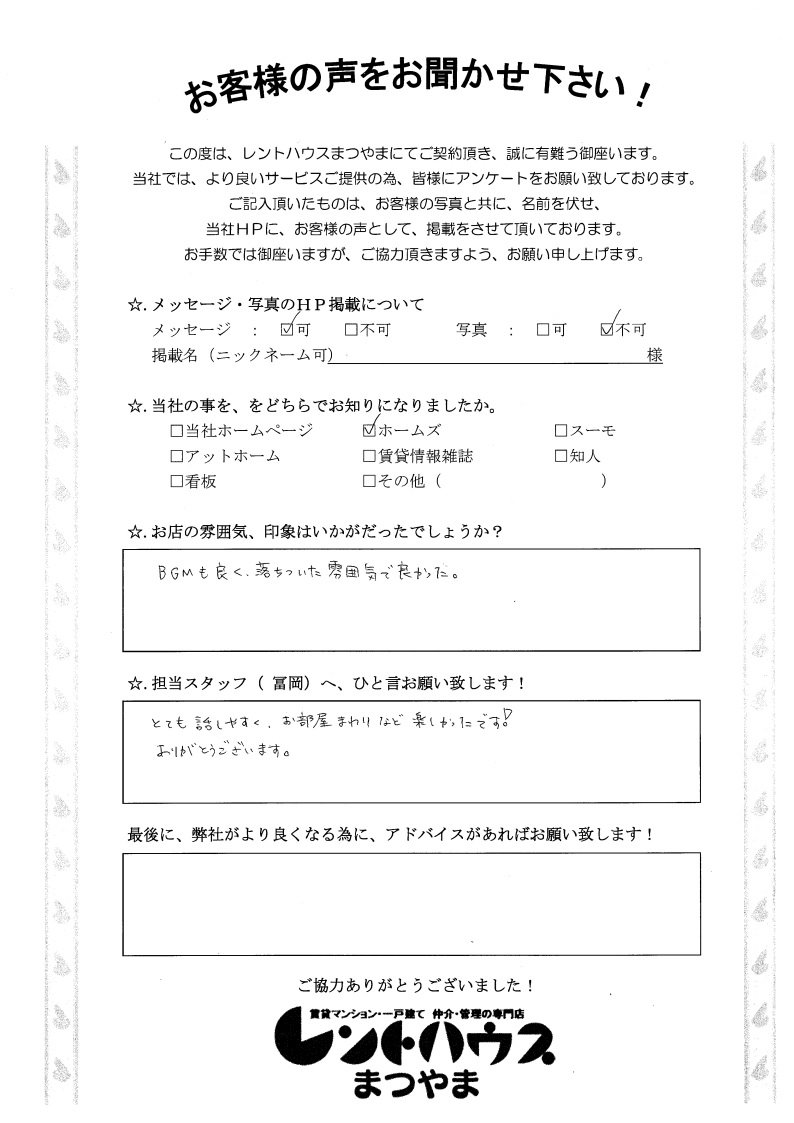 お客様の声をお聞かせ下さい！
この度は、レントハウスまつやまにてご契約頂き、誠に有難う御座います。
当社では、より良いサービスご提供の為、皆様にアンケートをお願い致しております。
ご記入頂いたものは、お客様の写真と共に、名前を伏せ、
当社ＨＰに、お客様の声として、掲載をさせて頂いております。
お手数では御座いますが、ご協力頂きますよう、お願い申し上げます。
☆.メッセージ・写真のＨＰ掲載について
メッセージ ： ☑可 □不可 写真 ： □可 ☑不可
掲載名（ニックネーム可） 様
☆.当社の事を、をどちらでお知りになりましたか。
□当社ホームページ ☑ホームズ □スーモ
□アットホーム □賃貸情報雑誌 □知人
□看板 □その他（ ）
☆.お店の雰囲気、印象はいかがだったでしょうか？
BGMも良く、落ちついた雰囲気で良かった。
☆.担当スタッフ（ 冨岡）へ、ひと言お願い致します！
とても話しやすく、お部屋まわりなど楽しかったです!
ありがとうございます。
最後に、弊社がより良くなる為に、アドバイスがあればお願い致します！
ご協力ありがとうございました！
賃貸マンション・一戸建て 仲介・管理の専門店
レントハウス
まつやま